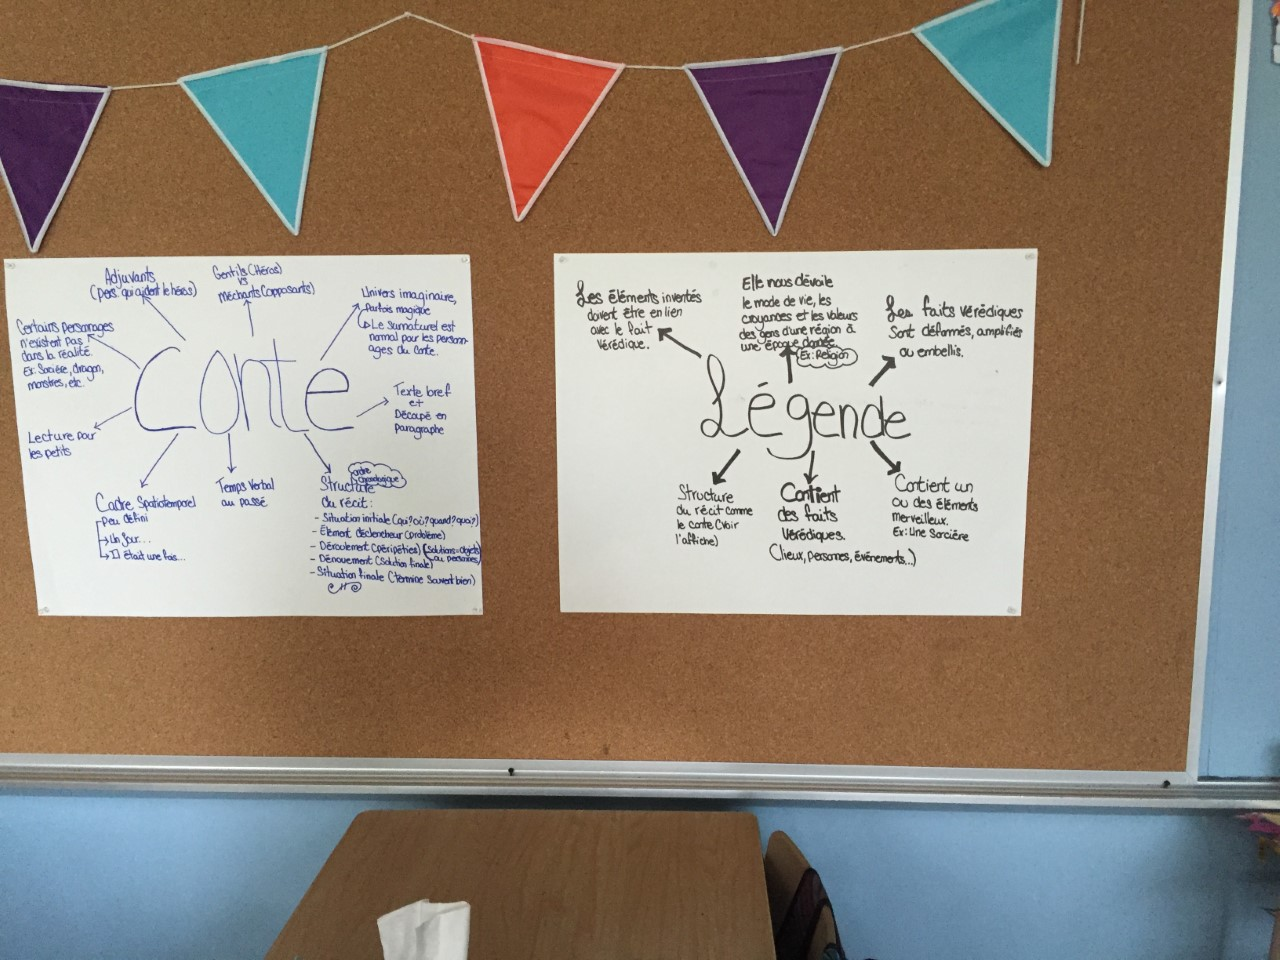 Adjuvants
(pers. qui aident le héros)
Gentils (Héros)
vs
Méchants (opposants)
Univers imaginaire,
parfois magique
Le surnaturel est
normal pour les personn-
ages du conte.
Certains personnages
n'existent pas
dans la réalité.
Ex: Sorcière, dragon,
monstres, etc.
Conte
Texte bref
et
Découpé en
paragraphe
Lecture pour
les petits
Cadre Spatiotemporel
peu défini
Un jour...
Il était une fois...
Temps Verbal
au passé
ordre
chronologique
Structure
du récit:
- Situation initiale (qui? où? quand? quoi?)
- Élément déclencheur (problème)
- Déroulement (péripéties) (solutions=objets
ou personnes)
- Dénouement (solution finale)
- Situation finale (termine souvent bien)
Les éléments inventés
doivent être en lien
avec le fait
Véridique.
Elle nous dévoile
le mode de vie, les
croyances et les valeurs
des gens d'une région à
une époque donnée.
Ex: Religion
Les faits véridiques
Sont déformés, amplifiés
ou embellis.
Légende
Structure
du récit comme
le conte (voir
l'affiche)
Contient
des faits
Véridiques.
(lieux, persones, événements...)
Contient un
ou des éléments
merveilleux.
Ex: Une Sorcière